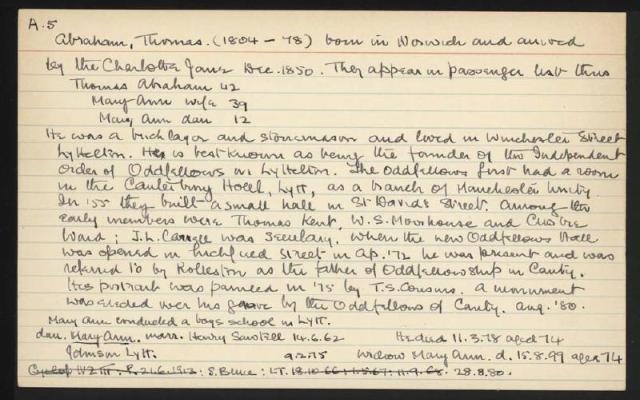 A.5
Abraham, Thomas. (1804 – 78) born in Norwich and arrived
by the Charlotte Jane Dec. 1850. They appear in passenger list thus
Thomas Abraham 42
Mary Ann wife 39
Mary Ann dau 12
He was a bricklayer and stonemason and lived in Winchester Street
Lyttelton. He is best known as being the founder of the Independent
Order of Oddfellows in Lyttelton. The Oddfellows first had a room
in the Canterbury Hotel, Lytt, as a branch of Manchester Unity.
In '55 they built a small hall in St Davids Street. Among the
early members were Thomas Kent, W.S. Moorhouse and Crosbie
Ward; J.L. was Secretary. When the new Oddfellows Hall
was opened in Lichfield Street in Ap. '72 he was present and was
referred to by Rolleston as the father of Oddfellowship in Canty.
His portrait was painted in '75 by T.S. Cousins. A monument
was erected over his grave by the Oddfellows of Canty. Aug. '80.
Mary Ann conducted a boys school in Lytt.
dau. Mary Ann. marr. Henry 14.6.62 He died 11.3.78 aged 74
Johnson Lytt. Widow Mary Ann. d. 15.8.99 aged 74
Cyclop NZ III. P. 21.6.1912: S. Bruce: LT. 18.10.66: 1.5.67: 11.9.68. 28.8.80.